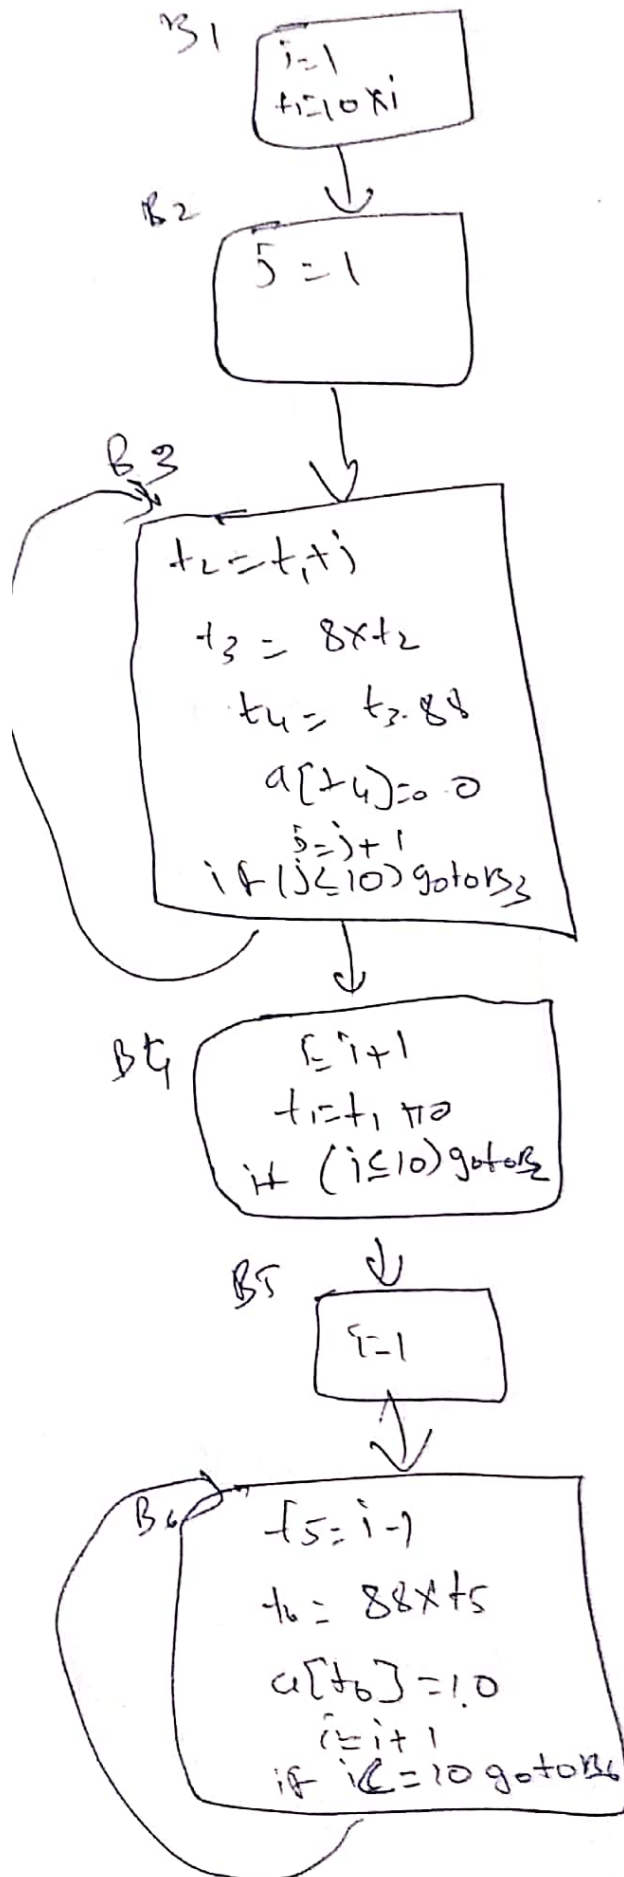 B1
i=1
t1=10*i
B2
j=1
B3
t2=t1+j
t3 = 8*t2
t4 = t3-88
a[t4]=0.0
j=j+1
if (j<=10) goto B3
B4
i=i+1
t1=t1+10
if (i≤10) goto B2
B5
i=1
B6
t5=i-1
t6= 88*t5
a[t6]=1.0
i=i+1
if i<=10 goto B6